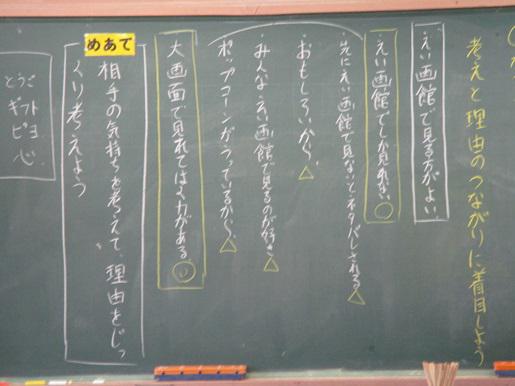 考えと理由のつながりに着目しよう
えい画館で見る方がよい。
えい画館でしか見れない。○
・先にえい画館で見ないとネタバレされる△
・おもしろいから。△
・みんな、えい画館で見るのが好き△
・ポップコーンがうっているから、△
大画面で見れてはく力がある
めあて
相手の気持ちを考えて、理由をじっ
くり考えよう
とうご
ギフト
ピヨ
心